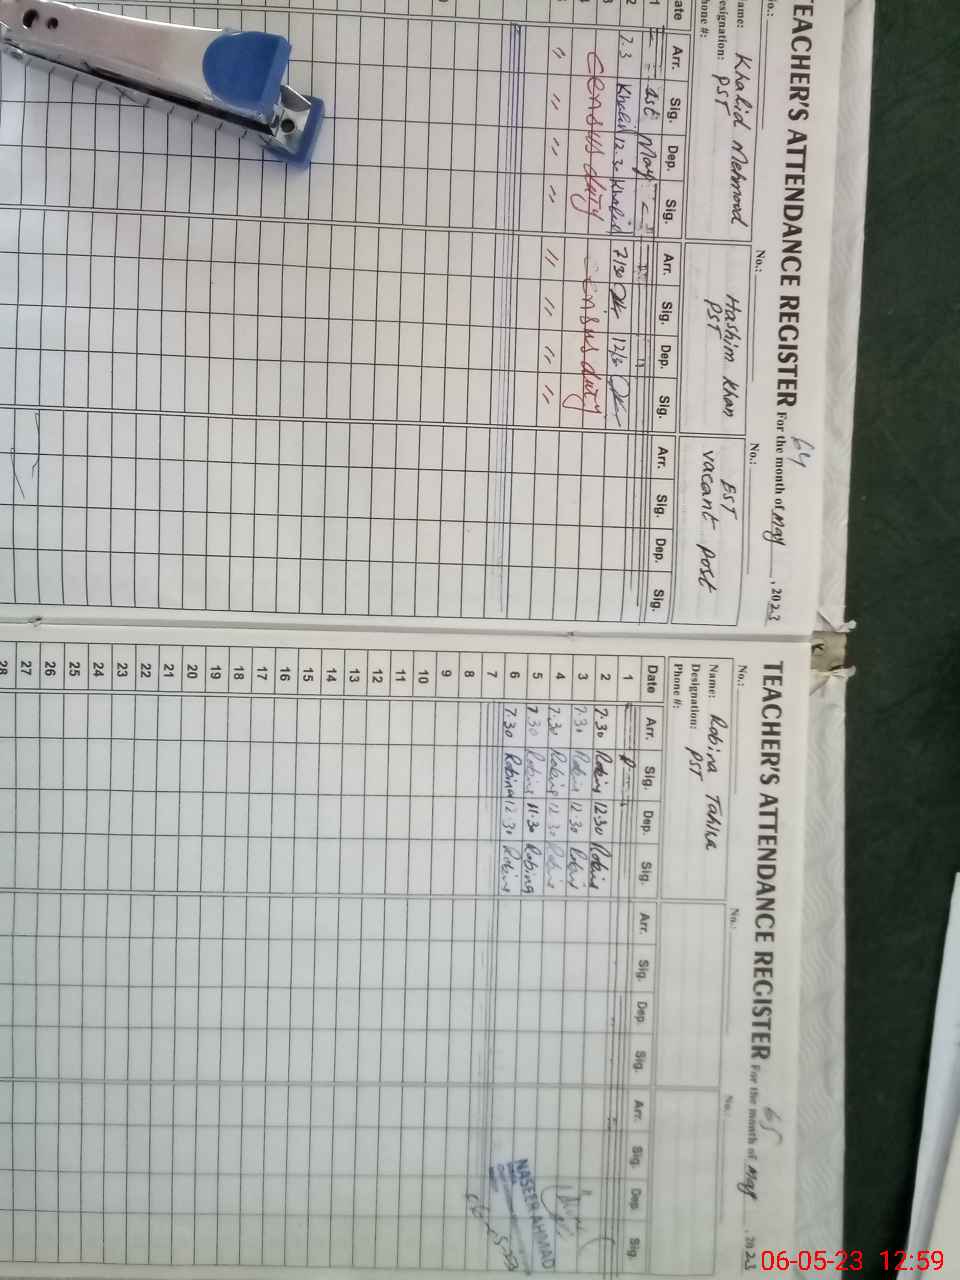 TEACHER'S ATTENDANCE REGISTER For the month of May, 2023
64
No.: No.: No.:
Name: Khalid Mehmood
Designation: PST
Phone #:
Hashim Khan
PST
EST
vacant post
Date Arr. Sig. Dep. Sig. Arr. Sig. Dep. Sig. Arr. Sig. Dep. Sig.
1 1st May
2 7.3 Khalid 12.30 Khalid 7/30
3 Census duty Census duty
" " " " " " " "
TEACHER'S ATTENDANCE REGISTER For the month of May, 2023
65
No.: No.: No.:
Name: Robina Tahira
Designation: PST
Phone #:
Date Arr. Sig. Dep. Sig. Arr. Sig. Dep. Sig. Arr. Sig. Dep. Sig.
1
2 7.30 Robina 12.30 Robina
3 7.30 Robina 12.30 Robina
4 7.30 Robina 12.30 Robina
5 7.30 Robina 11.30 Robina
6 7.30 Robina 12.30 Robina
7
8
9
10
11
12
13
14
15
16
17
18
19
20
21
22
23
24
25
26
27
28
NASEER AHMAD
06-05-23 12:59